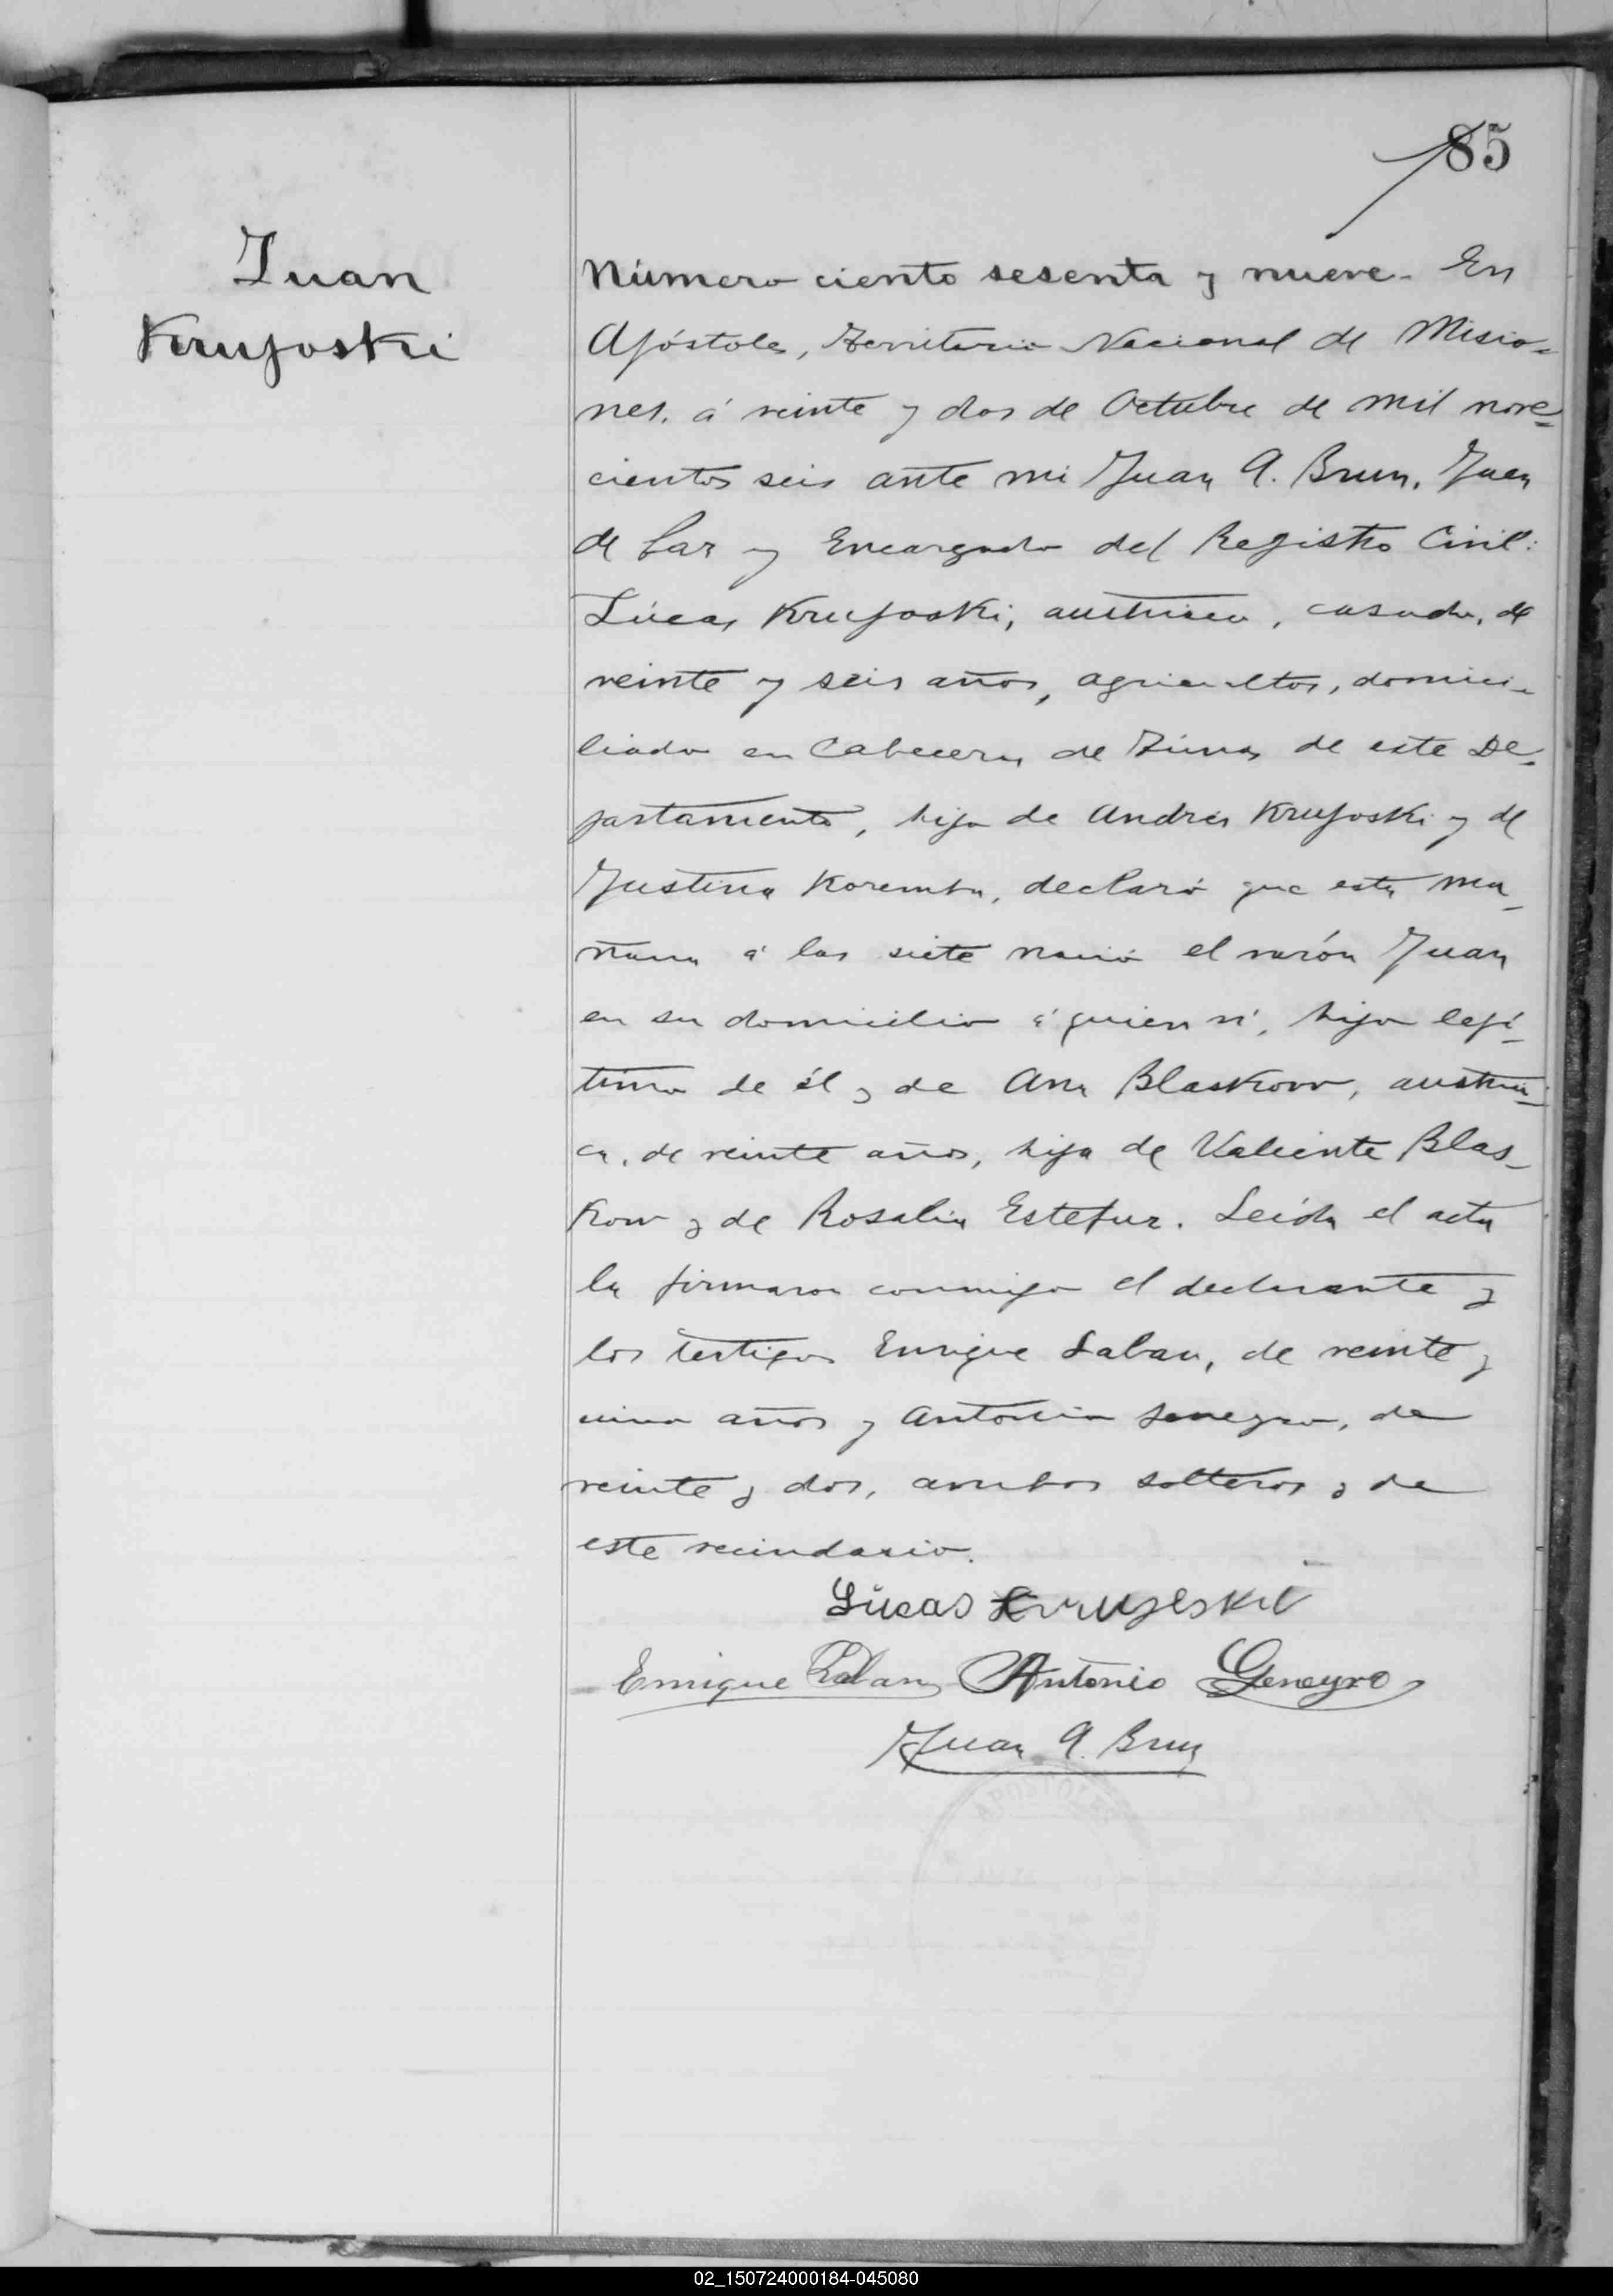 85
Juan
Krujoski
Número ciento sesenta y nueve. En
Apóstoles, Territorio Nacional de Misio=
nes, á veinte y dos de Octubre de mil nove=
cientos seis ante mi Juan A. Brun, Juez
de Paz y Encargado del Registro Civil:
Lúcas Krujoski, austriaco, casado, de
veinte y seis años, agricultor, domici-
liado en Cabeceras de Tunas de este De-
partamento, hijo de Andrés Krujoski y de
Justina Koremba, declaró que esta ma-
ñana á las siete nació el varón Juan
en su domicilio á quien ví, hijo legí-
timo de él y de Ana Blaskow, austria-
ca, de veinte años, hija de Valiente Blas-
kow y de Rosalia Estefur. Leida el acta
la firmaron conmigo el declarante y
los testigos Enrique Laban, de veinte y
cinco años y Antonio Geneyro, de
veinte y dos, ambos solteros y de
este vecindario.
Lúcas Krujeski
Enrique Laban Antonio Geneyro
Juan A. Brun
APOSTOLES
02_150724000184-045080